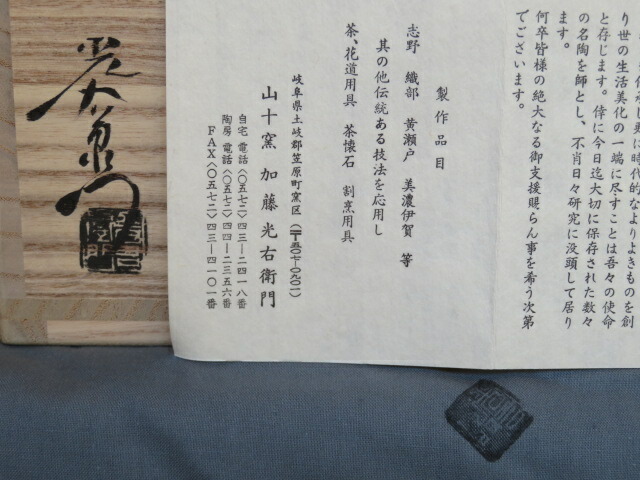 り世の生活美化の一端に尽すことは吾々の使命
と存じます。倖に今日迄大切に保存された数々
の名陶を師とし、不肖日々研究に没頭して居り
ます。
何卒皆様の絶大なる御支援賜らん事を希う次第
でございます。
製作品目
志野 織部 黄瀬戸 美濃伊賀 等
其の他伝統ある技法を応用し
茶、花道用具 茶懐石 割烹用具
岐阜県土岐郡笠原町窯区(〒五〇七-〇九〇一)
山十窯 加藤光右衛門
自宅 電話〈〇五七二〉四三-二四一八番
陶房 電話〈〇五七二〉四四-二三五六番
FAX〈〇五七二〉四三-四一〇一番
光右衛門